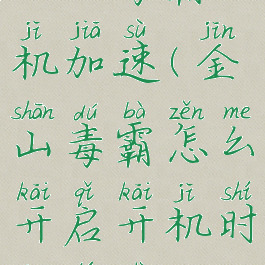 jī jiā sù jīn
机加速(金
shān dú bà zěn me
山毒霸怎么
kāi qǐ kāi jī shí
开启开机时